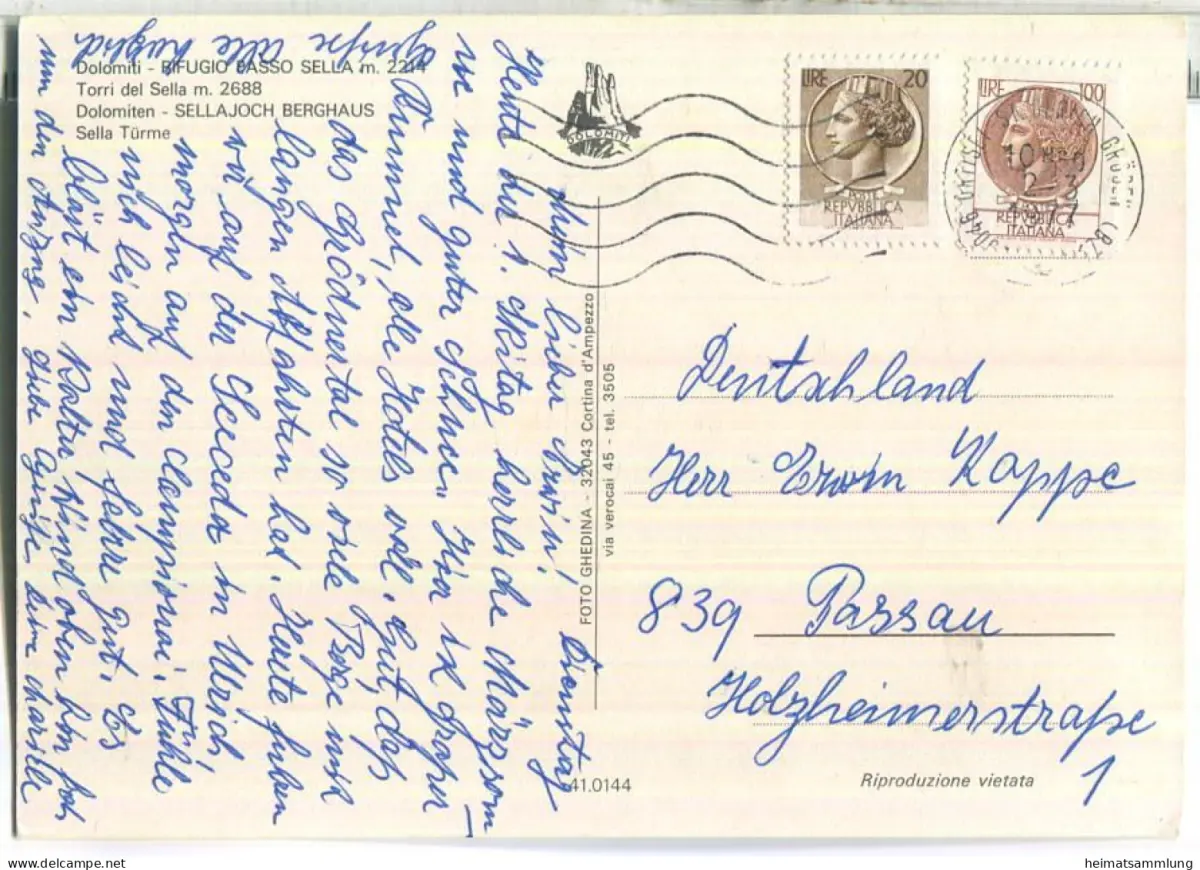 Dolomiti - RIFUGIO PASSO SELLA m. 2214
Torri del Sella m. 2688
Dolomiten - SELLAJOCH BERGHAUS
Sella Türme
DOLOMITI
LIRE 20
REPVBBLICA
ITALIANA
LIRE 100
REPVBBLICA
ITALIANA
Dienstag
Mein lieber Erwin!
Heute der 1. Skitag herrliche Märzson-
ne und guter Schnee. Hier ist großer
Rummel, alle Hotels voll. Gut, daß
das Grödnertal so viele Berge mit
langen Abfahrten hat. Heute fuhren
wir auf der Secceda in Ulrich
morgen auf den Ciampinoi. Fühle
mich leicht und fahre gut. Es
bläst ein kalter Wind oben bin froh
um den Anzug. Liebe Grüße Deine
Grüße alle
FOTO GHEDINA - 32043 Cortina d'Ampezzo
via verocai 45 - tel. 3505
Deutschland
Herr Erwin Kappe
839 Passau
Holzheimerstraße
1
41.0144
Riproduzione vietata
heimatsammlung